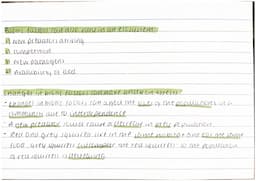 Biotic factors can also vary in an ecosystem
new predators arriving
competition
new pathogens
availability of food
changes in biotic factors can have knock-on effects
• changes in biotic factors can affect the sizes of the populations in a
community due to interdependence
• A new predator could cause a decrease in prey population
• Red and grey squirrels live in the same habitat and eat the same
food. Grey squirrels outcompete the red squirrels so the population
of red squirrels is decreasing